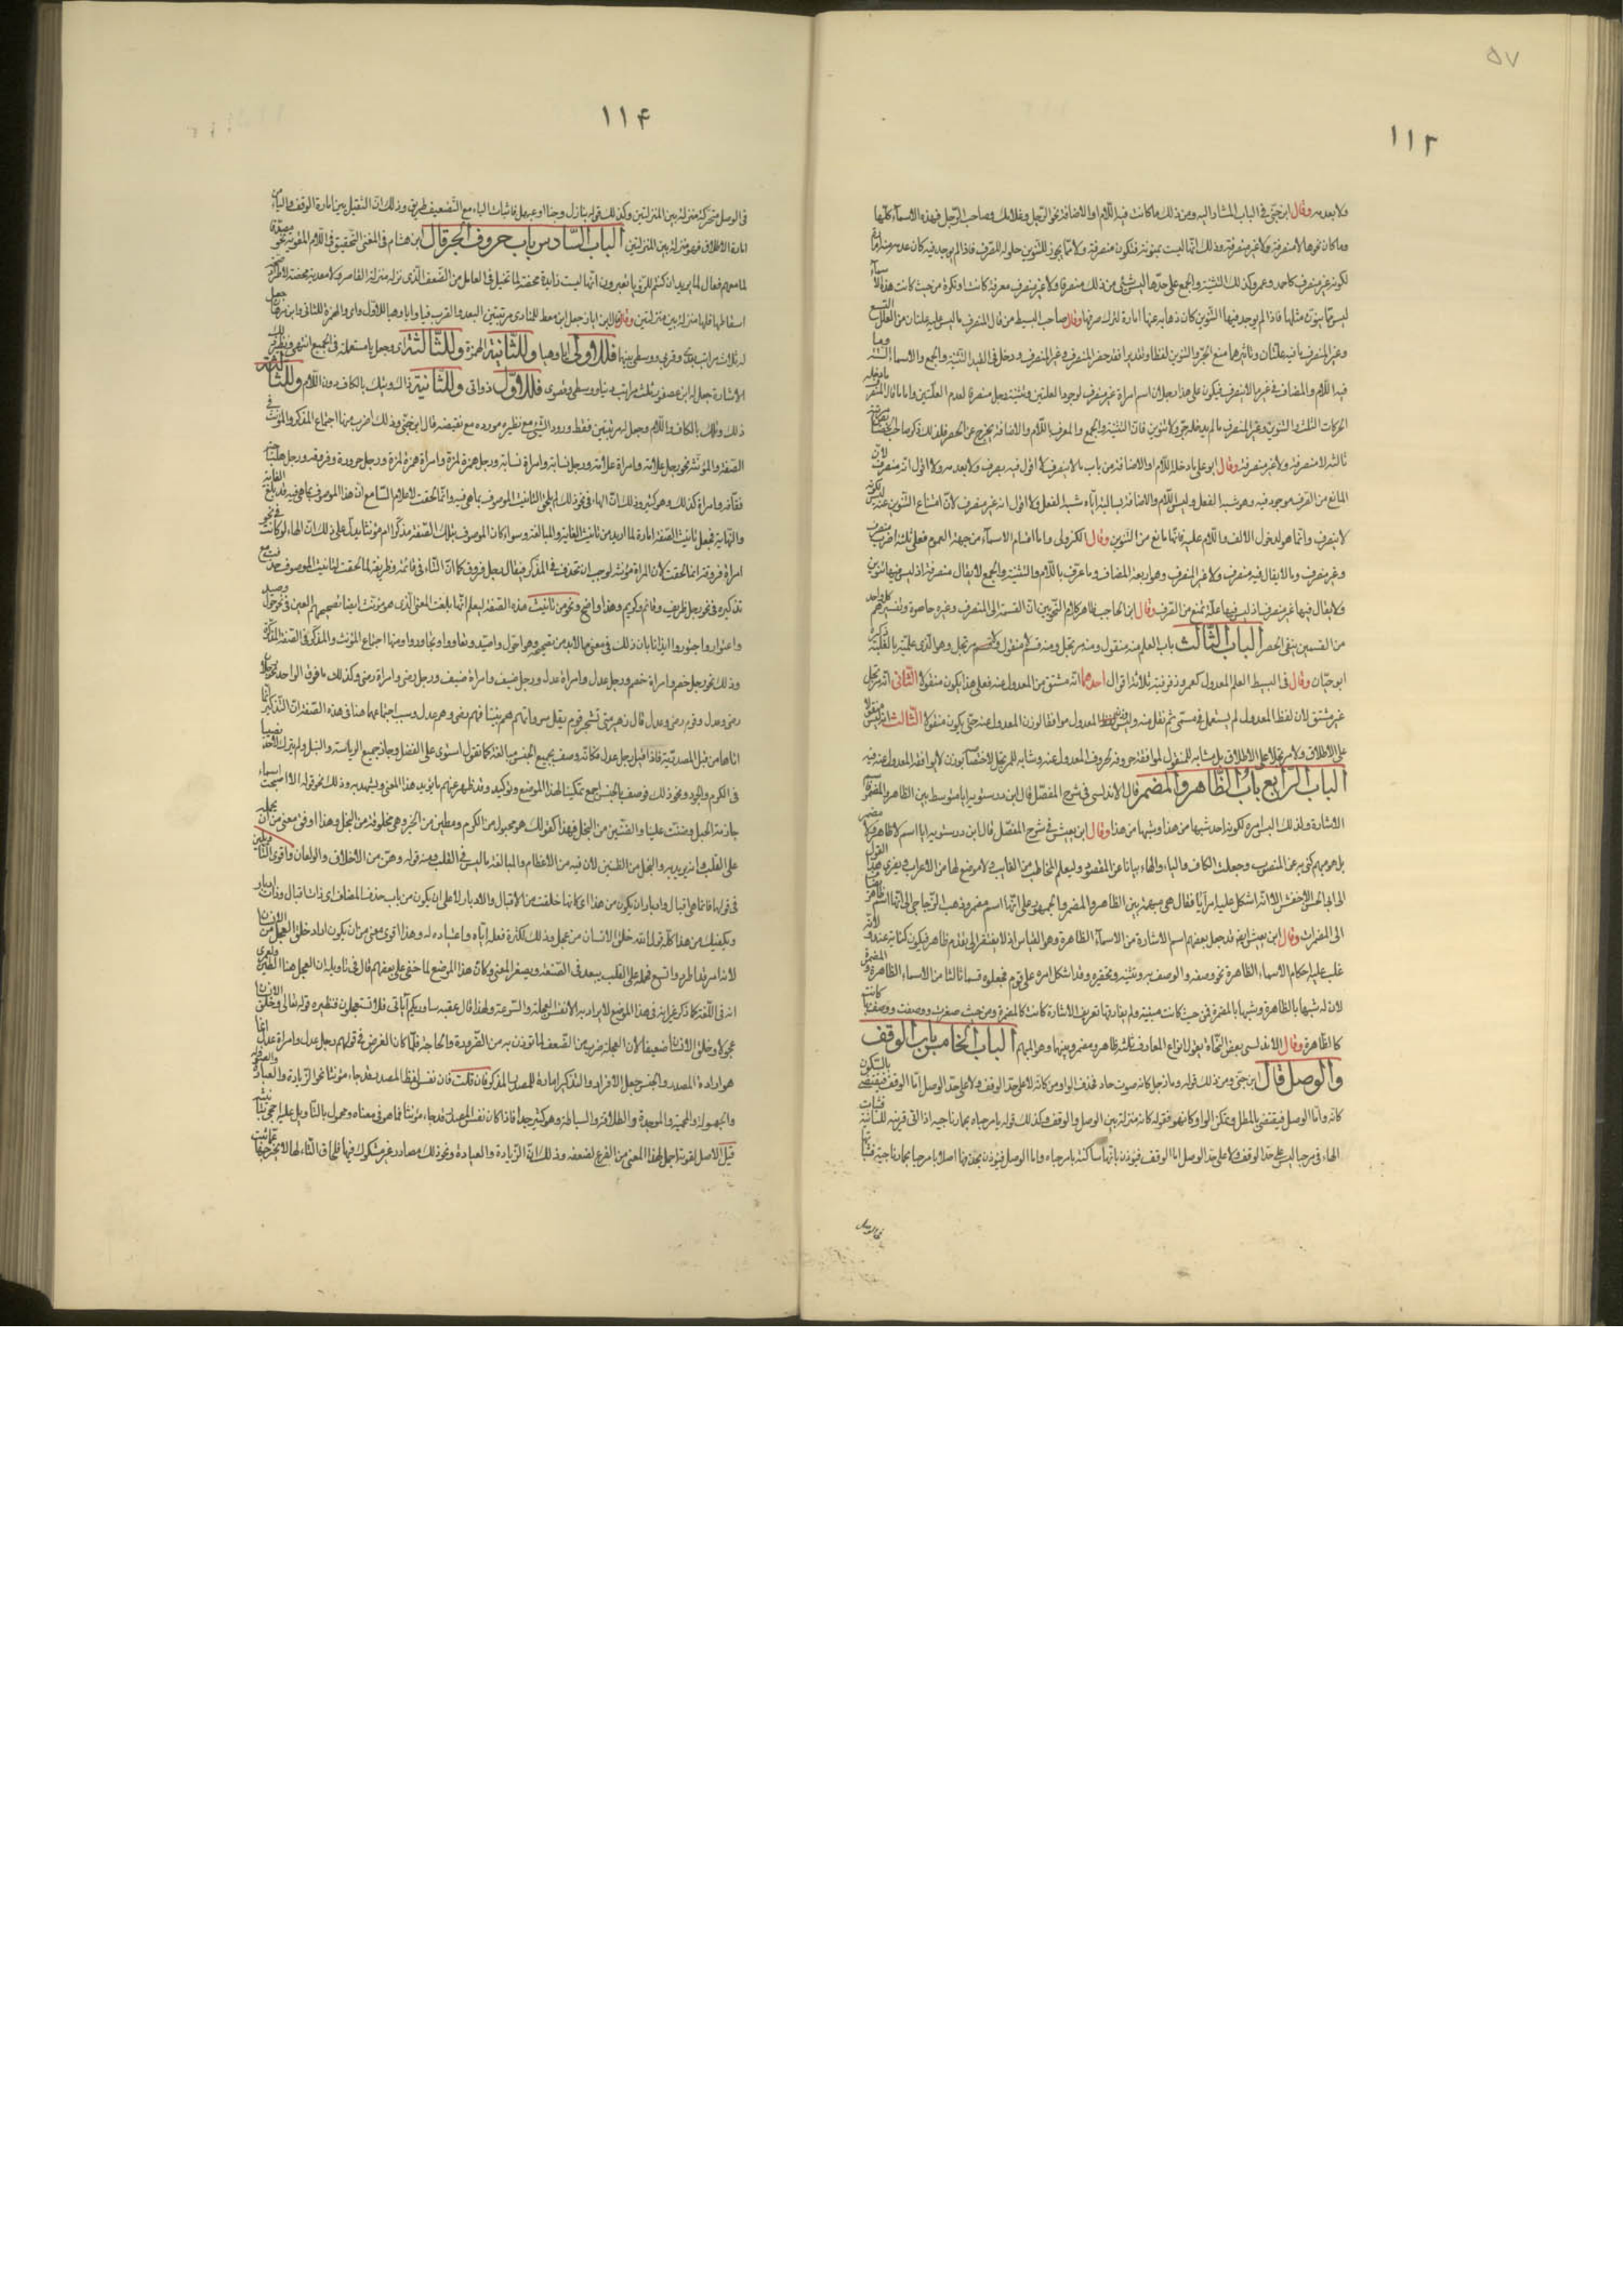 ۵۷
۱۱۳
ولا بعد به وقال ابن جنّى فى الباب المشار اليه ومن ذلك ما كانت فيه اللّام او الاضافة نحو الرّجل وغلامك وصاحب الرّجل فهذه الاسمآء كلّها
وما كان نحوها لا منصرفة ولا غير منصرفة وذلك انّها ليست بمنونة فتكون منصرفة ولا ممّا يجوز للتنوين حلوله للصّرف فاذا لم يوجد فيه كان عدمه منه امارة
لكونه غير منصرف كاحمد وعمر وكذلك التثنية والجمع على حدّها ليس شئ من ذلك منصرفا ولا غير منصرف معرفة كانت او نكرة من حيث كانت هذه الاسمآء
ليس ممّا ينون مثلها فاذا لم يوجد فيها التنوين كان ذهابه عنها امارة لترك صرفها وقال صاحب البسيط من قال المنصرف ما ليس فيه علتان من العلل التسع
وغير المنصرف ما فيه علتان وتاثيرهما منع الجرّ والتنوين لفظا وتقديرا فقد حصر المنصرف وغير المنصرف ودخل فى القيد التثنية والجمع والاسماء الستة وما
فيه اللّام والمضاف فى غير ما لا ينصرف فيكون على هذا رجلان اسم امراة غير منصرف لوجود العلتين وتثنية رجل منصرفا لعدم العلّتين واما ما قال المنصرف ما دخله
الحركات الثلث والتنوين وغير المنصرف ما لم يدخله جرّ ولا تنوين فانّ التثنية والجمع والمعرف باللّام والاضافة يخرج عن الحصر فلذلك ذكر صاحب الخصائص
ثالثة لا منصرفة ولا غير منصرفة وقال ابو على ما دخله اللّام او الاضافة من باب ما لا ينصرف لا اقول فيه ينصرف ولا بعد به ولا اقول انه منصرف لانّ
المانع من الصرف موجود فيه وهو شبه الفعل وليس اللّام والاضافة
لا ينصرف وانّما هو لدخول الالف واللّام عليه فانّها مانع من التنوين وقال الكزولى واما اقسام الاسمآء من جهة العموم فعلى ثلثة اضرب منصرف
وغير منصرف وما لا يقال فيه منصرف ولا غير المنصرف وهو اربعة المضاف وما عرّف باللّام والتثنية والجمع لا يقال منصرفة اذ ليس فيها تنوين
ولا يقال فيها غير منصرف اذ ليس فيها علّة تمنع من الصّرف وقال ابن الحاجب ظاهر كلام النّحويين انّ القسمة الى المنصرف وغيره حاصرة وتفسيرهم كل واحد
من القسمين ينفى الحصر الباب الثّالث باب العلم منه منقول ومنه مرتجل ومنه قسم لا منقول ولا مرتجل وهو الّذى علميّته بالغلبة ذكره
ابو حيّان وقال فى البسيط العلم المعدول كعمر وزفر فيه ثلاثة اقوال احدها انّه مشتق من المعدول عنه فعلى هذا يكون منقولا الثّانى انّه مرتجل
غير مشتق لان لفظ المعدول لم يستعمل فى مسمّى ثم نقل منه وليس المعدول موافقا لوزن المعدول عنه حتى يكون منقولا الثّالث انّه ليس منقولا
على الاطلاق ولا مرتجلا على الاطلاق بل مشابه للمنقول لموافقة حروفه لحروف المعدول عنه ومشابه للمرتجل لاختصاصه بوزن لا يوافقه المعدول عنه فيه
الباب الرّابع باب الظّاهر والمضمر قال الاندلسى فى شرح المفصّل قال ابن درستويه ايا متوسط بين الظاهر والمضمر كاسماء
الاشارة ولذلك التبس امره لكونه اخذ شبها من هذا وشبها من هذا وقال ابن يعيش فى شرح المفصّل قال ابن درستويه ايا اسم لا ظاهر ولا مضمر
بل هو مبهم كنى به عن المنصوب وجعلت الكاف والياء والهاء بيانا عن المقصود وليعلم المخاطب من الغايب ولا موضع لها من الاعراب ويعزى هذا القول
الى ابى الحسن الاخفش الّا انّه اشكل عليه امر ايّا فقال هى مبهمة بين الظاهر والمضمر والجمهور على انّها اسم مضمر وذهب الزّجاج الى انّها اسم ظاهر
الى المضمرات وقال ابن يعيش ايضا قد جعل بعضهم اسم الاشارة من الاسمآء الظاهرة وهو القياس اذ لا يفتقر الى تقدّم ظاهر فيكون كناية عنه ولانّه
غلب عليه احكام الاسماء الظاهرة نحو وصفه والوصف به وتثنيته وتحقيره وقد اشكل امره على قوم فجعلوه قسما ثالثا من الاسماء الظاهرة والمضمرة
لان له شبها بالظاهرة وشبها بالمضمرة فمن حيث كانت مبنية ولم يفارقها تعريف الاشارة كانت كالمضمرة ومن حيث صغرت ووصفت ووصف بها كانت
كالظّاهرة وقال الاندلسى بعض النّحاة يقول انواع المعارف ثلثة ظاهر ومضمر وبينهما وهو المبهم الباب الخامس باب الوقف
والوصل قال ابن جنّى ومن ذلك قوله ومازجل كانه صوت حاد فحذف الواو من كانّه لا على حدّ الوقف ولا على حدّ الوصل امّا الوقف فيقتضى بالسّكون
كانه وامّا الوصل فيقتضى بالمطل وتمكن الواو كانهو فقوله كانه منزلة بين الوصل والوقف وكذلك قوله يا مرحباه بحمار ناجيه اذا اتى قربته للسانيه فثبات
الهاء فى مرحباه ليس على حدّ الوقف ولا على حدّ الوصل اما الوقف فيؤذن بانّها ساكنة يا مرحباه واما الوصل فيؤذن بحذفها اصلا يا مرحبا بحمار ناجية فثباتها
فى الوصل
۱۱۴
فى الوصل متحرّكة منزلة بين المنزلتين وكذلك قوله ببازل وجنا او عيهل فاثبات الياء مع التّضعيف طريف وذلك انّ التثقيل من امارة الوقف والياء من
امارة الاطلاق فهو منزلة بين المنزلتين الباب السّادس باب حروف الجر قال ابن هشام فى المغنى التّحقيق فى اللّام المقوّية نحو مصدّقا
لما معهم فعّال لما يريد ان كنتم للرّؤيا تعبرون انّها ليست زايدة محضة لما تخيّل فى العامل من الضّعف الّذى نزّله منزلة القاصر ولا معدّية محضة لاطّراد صحّة
اسقاطها فلها منزلة بين منزلتين وقال ابن اياز جعل ابن معط للمنادى مرتبتين البعد والقرب فيا وايا وهيا للاوّل واى والهمزة للثانى وابن برهان جعل
له ثلاث مراتب بعدى وقربى ووسطى بينهما فللاولى ايا وهيا وللثّانية الهمزة وللثّالثة اى وجعل يا مستعملة فى الجميع انتهى ونظير ذلك
الاشارة جعل له ابن عصفور ثلث مراتب دنيا ووسطى وقصوى فللاوّل ذا وتى وللثّانية ذاك وتيك بالكاف دون اللّام وللثّالثة
ذلك وتلك بالكاف واللّام وجعل له مرتبتين فقط ورود الشّئ مع نظيره مورده مع نقيضه قال ابن جنّى وذلك اضرب منها اجتماع المذكّر والمؤنّث فى
الصّفة المؤنّثة نحو رجل علّامة وامراة علّامة ورجل نسّابة وامراة نسّابة ورجل همزة لمزة وامراة همزة لمزة ورجل صرورة وفروقة ورجل هلباجة
فقاقة وامراة كذلك وهو كثير وذلك انّ الهاء فى نحو ذلك لم تلحق لتانيث الموصوف بما هى فيه وانّما لحقت لاعلام السّامع انّ هذا الموصوف بما هى فيه قد بلغ الغاية
والنّهاية فجعل تانيث الصّفة امارة لما اريد من تانيث الغاية والمبالغة وسواء كان الموصوف بتلك الصّفة مذكّرا ام مؤنّثا يدلّ على ذلك انّ الهاء لو كانت فى نحو
امراة فروقة انما لحقت لان المراة مؤنثة لوجب ان تحذف فى المذكّر فيقال رجل فروق كما انّ التّاء فى قائمة وظريفة لما لحقت لتانيث الموصوف حذفت مع
تذكيره فى نحو رجل ظريف وقائم وكريم وهذا واضح ونحو من تانيث هذه الصّفة ليعلم انّها بلغت المعنى الّذى هو مؤنّث ايضا تصحيحهم العين فى نحو حول وصيد
واعتونوا واجتوروا ايذانا بان ذلك فى معنى ما لا بد من تصحيحه وهو احول واصيد وتعاونوا وتجاوروا ومنها اجتماع المؤنث والمذكّر فى الصّفة المذكّرة
وذلك نحو رجل خصم وامراة خصم ورجل عدل وامراة عدل ورجل ضيف وامراة ضيف ورجل رضى وامراة رضى وكذلك ما فوق الواحد نحو رجلان
رضى وعدل وقوم رضى وعدل قال زهير متى يشتجر قوم يقل سرواتهم هم بيننا فهم رضى وهم عدل وسبب اجتماعهما هنا فى هذه الصّفة انّ التّذكير انّما
اتاها من قبل المصدريّة فاذا قيل رجل عدل فكانّه وصف بجميع الجنس مبالغة كما تقول استولى على الفضل وحاز جميع الرياسة والنّبل ولم يترك لاحد نصيبا
فى الكرم والجود ونحو ذلك فوصف بالجنس اجمع تمكينا لهذا الموضع وتوكيدا وقد ظهر عنهم ما يؤيد هذا المعنى ويشهد به وذلك نحو قوله الا اصبحت اسماء
جاذمة الحبل وضنّت علينا والضّنين من البخل فهذا كقولك هو مجبول من الكرم ومطين من الخير وهى مخلوقة من البخل وهذا اوفق معنى من ان يحمله
على القلب وانه يريد به والبخل من الضّنين لان فيه من الاعظام والمبالغة ما ليس فى القلب ومنه قوله وهنّ من الاخلاف والولعان واقوى التّاويلين
فى قولها فانما هى اقبال وادبار ان يكون من هذا اى كانها خلقت من الاقبال والادبار لا على ان يكون من باب حذف المضاف اى ذات اقبال وذات ادبار
ويكفيك من هذا كلّه قول الله خلق الانسان من عجل وذلك لكثرة فعله ايّاه واعتياده له وهذا اقوى معنى من ان يكون اراد خلق العجل من الانسان
لانه امر قد اطرد واتسع فحمله على القلب يبعد فى الصّنعة ويصغر المعنى وكانّ هذا الموضع لما خفى على بعضهم قال فى تاويله ان العجل هنا الطّين ولعمرى
انه فى اللّغة كما ذكر غير انه فى هذا الموضع لا يراد به الا نفس العجلة والسّرعة ولهذا قال عقبه ساوريكم آياتى فلا تستعجلون فنظيره قوله تعالى وكان الانسان
عجولا وخلق الانسان ضعيفا لان العجلة ضرب من الضّعف لما تؤذن به من الضّرورة والحاجة فلمّا كان الغرض فى قولهم رجل عدل وامراة عدل انّما
هو ارادة المصدر والجنس جعل الافراد والتّذكير امارة للمصدر المذكر فان قلت فان نفس لفظ المصدر قد جاء مؤنثا نحو الزّيادة والعبادة
والجهومة والمحمية والموجدة والطّلاقة والسباطة وهو كثير جدا فاذا كان نفس المصدر قد جاء مؤنثا فما هو فى معناه ومحمول بالتّاويل عليه احجى بتانيثه
قيل الاصل لقوته احمل لهذا المعنى من الفرع لضعفه وذلك انّ الزّيادة والعبادة ونحو ذلك مصادر غير مشكوك فيها فلحاق التّاء لها لا يخرجها عما ثبت